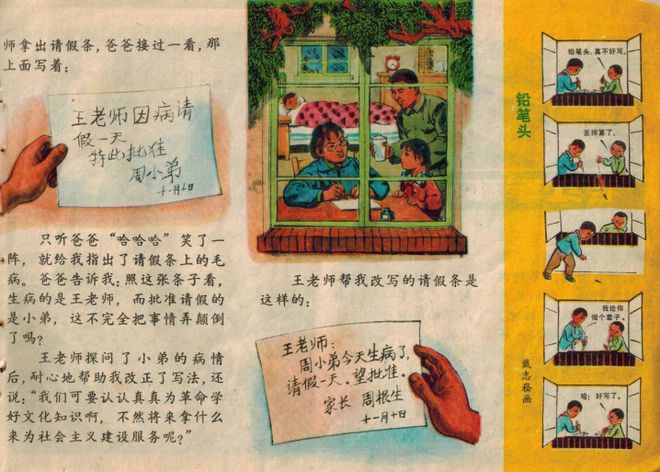 师拿出请假条，爸爸接过一看，那
上面写着：
王老师因病请
假一天
特此批准
周小弟
十一月十日
只听爸爸“哈哈哈”笑了一
阵，就给我指出了请假条上的毛
病。爸爸告诉我：照这张条子看，
生病的是王老师，而批准请假的
是小弟，这不完全把事情弄颠倒
了吗？
王老师探问了小弟的病情
后，耐心地帮助我改正了写法，还
说：“我们可要认认真真为革命学
好文化知识啊，不然将来拿什么
来为社会主义建设服务呢？”
王老师帮我改写的请假条是
这样的：
王老师：
周小弟今天生病了，
请假一天。望批准。
家长 周根生
十一月十日
铅笔头
铅笔头，真不好写。
丢掉算了。
我给你
做个套子。
哈！好写了。
戴志松画